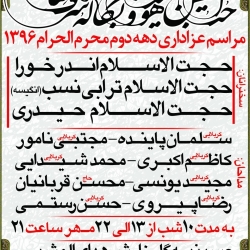 مراسم عزاداری دهه دوم محرم الحرام ۱۳۹۶
سخنرانان:
حجت الاسلام اندرخورا
حجت الاسلام ترابی نسب (انگیسه)
حجت الاسلام حیدری
مداحان:
کربلایی سلمان پاینده - کربلایی مجتبی نامور
کربلایی کاظم اکبری - کربلایی محمد شیدایی
کربلایی مجید یونسی - حاج حسن قربانیان
کربلایی رضا پیروی - کربلایی حسن رستمی
به مدت ۱۰ شب از ۱۳ الی ۲۲ مهر ساعت ۲۱